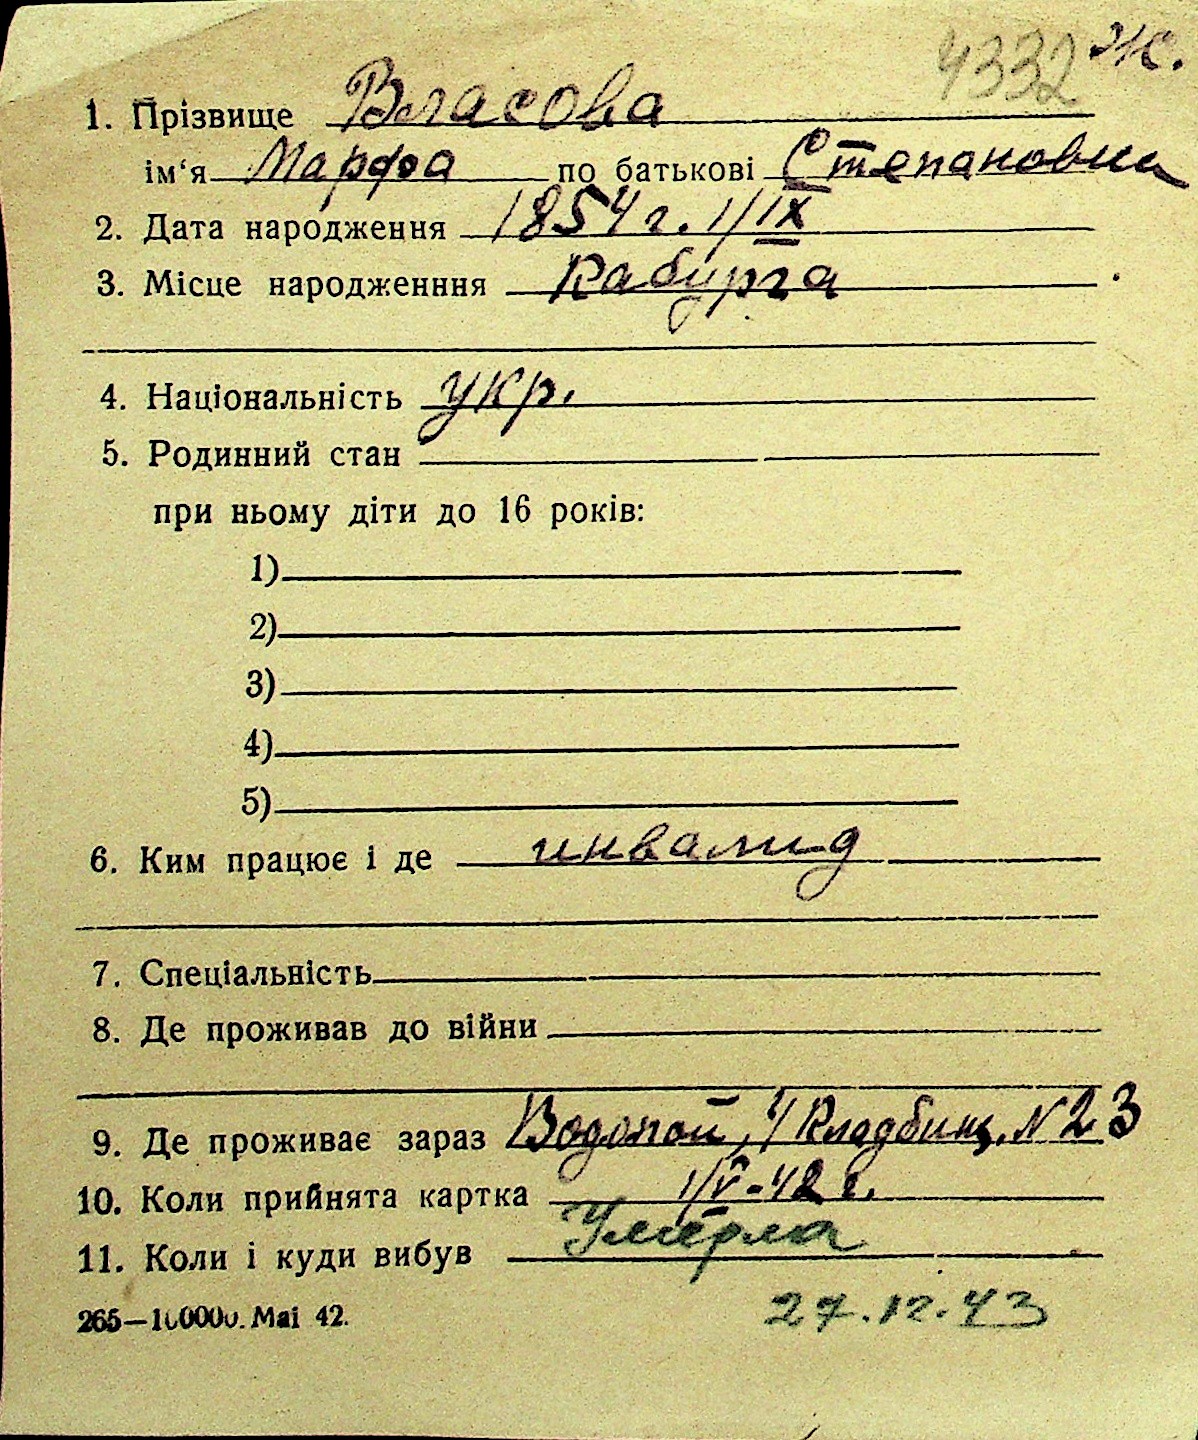 4332 Ж.
1. Прізвище Власова
ім‘я Марфа по батькові Степановна
2. Дата народження 1854 г. 1/IX
3. Місце народженння Кабурга
4. Національність укр.
5. Родинний стан
при ньому діти до 16 років:
1)
2)
3)
4)
5)
6. Ким працює і де инвалид
7. Спеціальність
8. Де проживав до війни
9. Де проживає зараз Водопой, 4 Кладбищ. N 23
10. Коли прийнята картка 1/V-42 г.
11. Коли і куди вибув Умерла
27.12.43
265—100000. Маі 42.